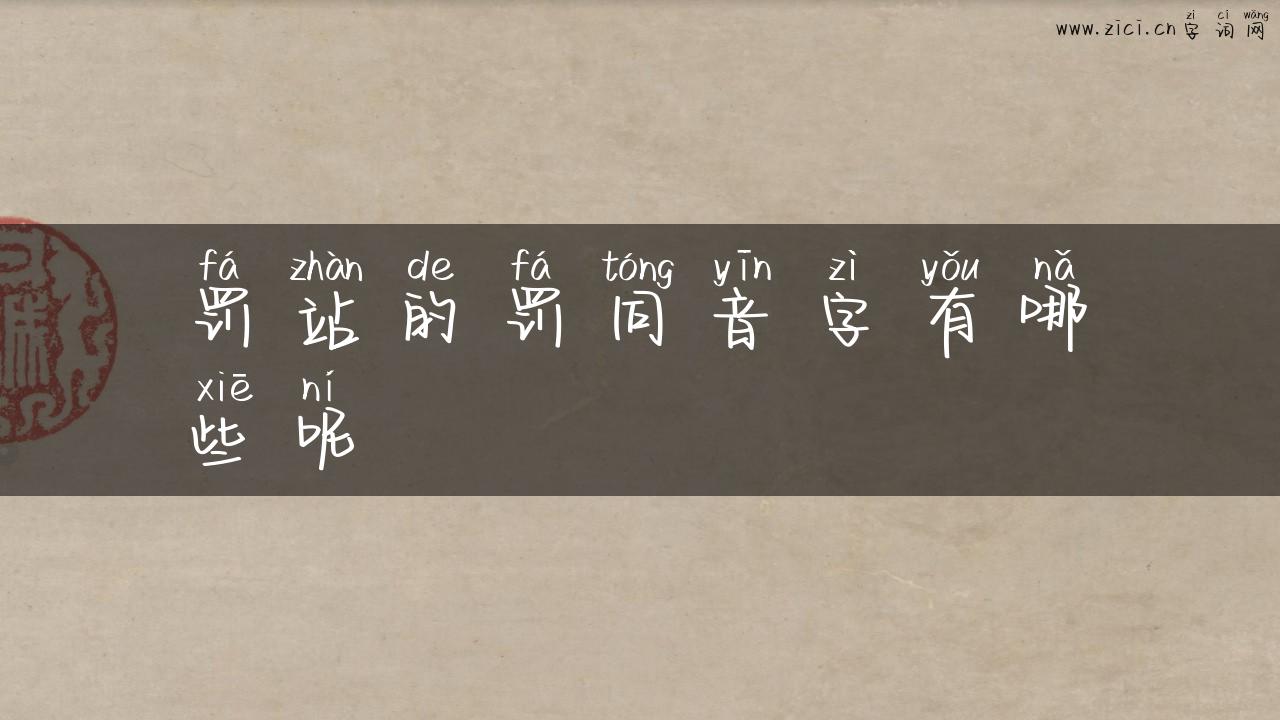 zì cí wǎng
www.zici.cn字词网
fá zhàn de fá tóng yīn zì yǒu nǎ
罚站的罚同音字有哪
xiē ní
些呢